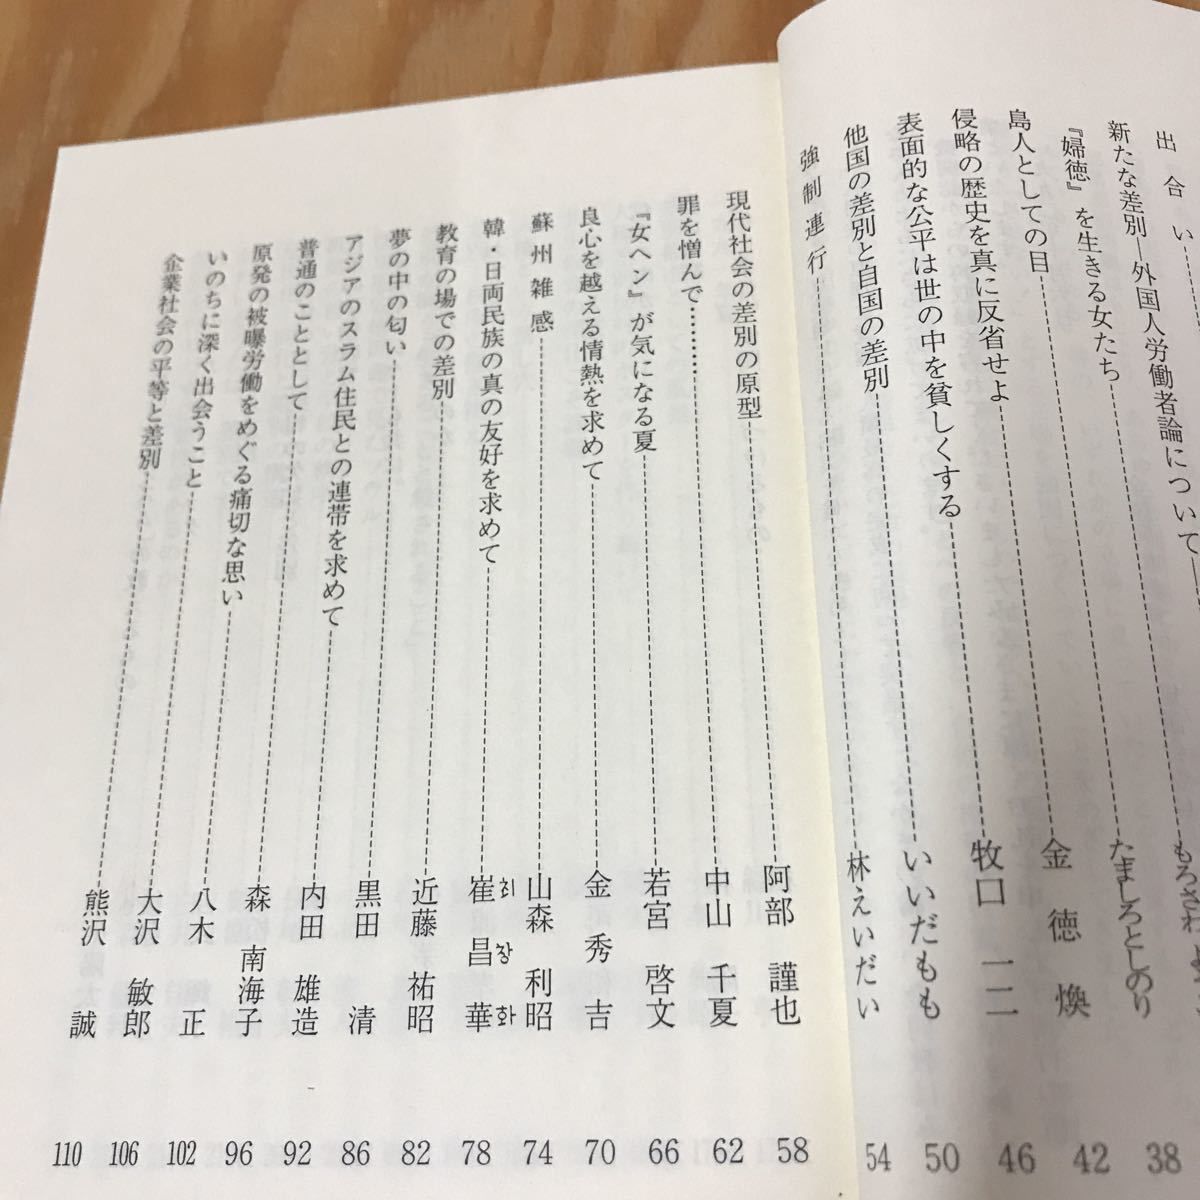 出合い
新たな差別―外国人労働者論について
『婦徳』を生きる女たち もろさわ
島人としての目 たましろとしのり 38
侵略の歴史を真に反省せよ 金徳煥 42
表面的な公平は世の中を貧しくする 牧口一二 46
他国の差別と自国の差別 いいだもも 50
強制連行 林えいだい 54
現代社会の差別の原型 阿部謹也 58
罪を憎んで 中山千夏 62
『女ヘン』が気になる夏 若宮啓文 66
良心を越える情熱を求めて 金秀吉 70
蘇州雑感 山森利昭 74
韓・日両民族の真の友好を求めて 崔昌華 78
教育の場での差別 近藤祐昭 82
夢の中の匂い 黒田清 86
アジアのスラム住民との連帯を求めて 内田雄造 92
普通のこととして 森南海子 96
原発の被曝労働をめぐる痛切な思い 八木正 102
いのちに深く出会うこと 大沢敏郎 106
企業社会の平等と差別 熊沢誠 110